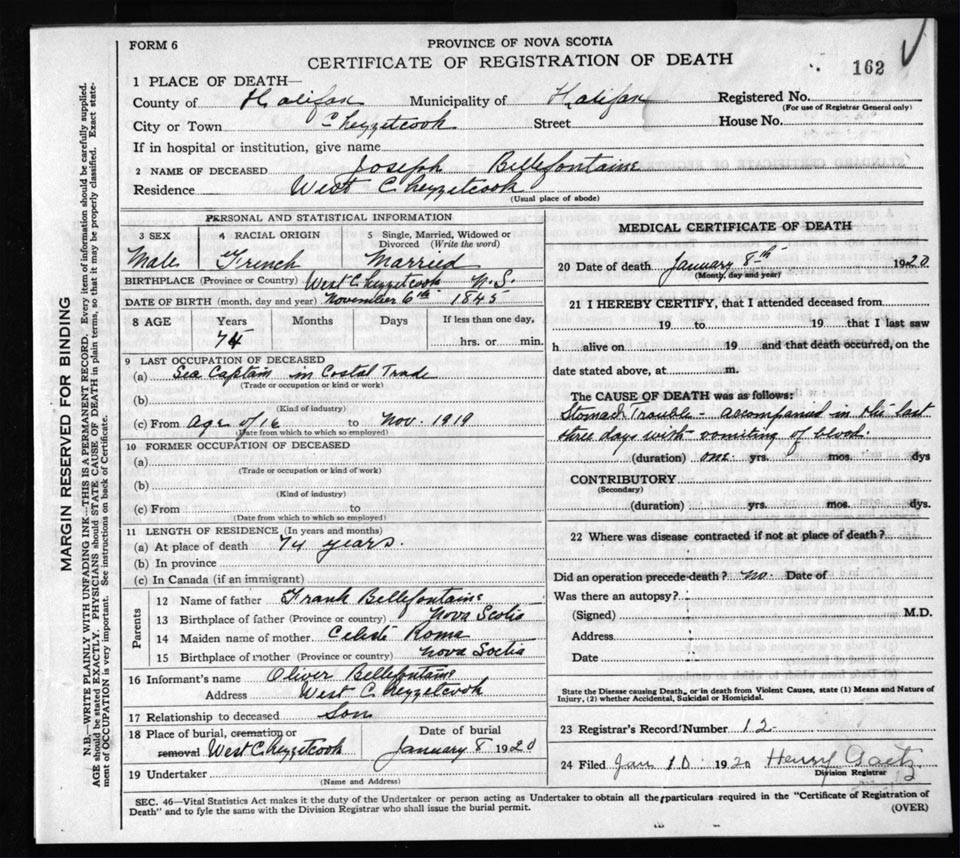 FORM 6
PROVINCE OF NOVA SCOTIA
CERTIFICATE OF REGISTRATION OF DEATH
162
1 PLACE OF DEATH—
County of Halifax Municipality of Halifax Registered No.
(For use of Registrar General only)
City or Town Chezzetcook Street House No.
If in hospital or institution, give name
2 NAME OF DECEASED Joseph Bellefontaine
Residence West Chezzetcook
(Usual place of abode)
PERSONAL AND STATISTICAL INFORMATION
3 SEX 4 RACIAL ORIGIN 5 Single, Married, Widowed or Divorced (Write the word)
Male French Married
BIRTHPLACE (Province or Country) West Chezzetcook N.S.
DATE OF BIRTH (month, day and year) November 6th 1845
8 AGE Years Months Days If less than one day,
74 hrs. or min.
9 LAST OCCUPATION OF DECEASED
(a) Sea Captain in Costal Trade
(Trade or occupation or kind of work)
(b)
(Kind of industry)
(c) From Age of 16 to Nov. 1919
(Date from which to which so employed)
10 FORMER OCCUPATION OF DECEASED
(a)
(Trade or occupation or kind of work)
(b)
(Kind of industry)
(c) From to
(Date from which to which so employed)
11 LENGTH OF RESIDENCE (In years and months)
(a) At place of death 74 years.
(b) In province
(c) In Canada (if an immigrant)
Parents
12 Name of father Frank Bellefontaine
13 Birthplace of father (Province or country) Nova Scotia
14 Maiden name of mother Celeste Roma
15 Birthplace of mother (Province or country) Nova Soctia
16 Informant's name Oliver Bellefontaine
Address West Chezzetcook
17 Relationship to deceased Son
18 Place of burial, cremation or removal West Chezzetcook
Date of burial January 8 1920
19 Undertaker
(Name and Address)
MEDICAL CERTIFICATE OF DEATH
20 Date of death January 8th 1920
(Month, day and year)
21 I HEREBY CERTIFY, that I attended deceased from
19 to 19 that I last saw
h alive on 19 and that death occurred, on the
date stated above, at m.
The CAUSE OF DEATH was as follows:
Stomach Trouble - accompanied in the last
three days with vomiting of blood.
(duration) one yrs. mos. dys
CONTRIBUTORY
(Secondary)
(duration) yrs. mos. dys.
22 Where was disease contracted if not at place of death?
Did an operation precede death? no. Date of
Was there an autopsy?
(Signed) M.D.
Address
Date
State the Disease causing Death, or in death from Violent Causes, state (1) Means and Nature of
Injury, (2) whether Accidental, Suicidal or Homicidal.
23 Registrar's Record Number 12
24 Filed Jan 10 1920 Henry Gaetz
Division Registrar
SEC. 46—Vital Statistics Act makes it the duty of the Undertaker or person acting as Undertaker to obtain all the particulars required in the "Certificate of Registration of
Death" and to fyle the same with the Division Registrar who shall issue the burial permit.
(OVER)
MARGIN RESERVED FOR BINDING
N.B.—WRITE PLAINLY WITH UNFADING INK—THIS IS A PERMANENT RECORD. Every item of information should be carefully supplied.
AGE should be stated EXACTLY. PHYSICIANS should STATE CAUSE OF DEATH in plain terms, so that it may be properly classified. Exact state-
ment of OCCUPATION is very important. See instructions on back of Certificate.